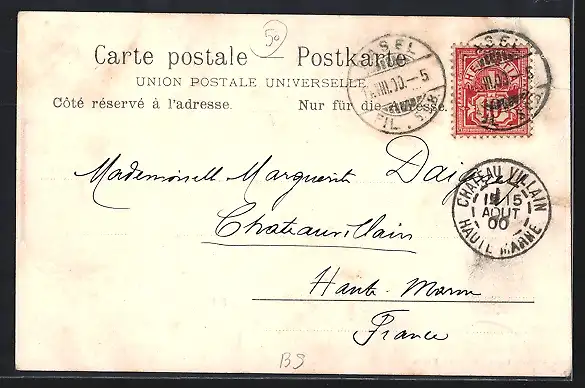 50
Carte postale — Postkarte
UNION POSTALE UNIVERSELLE
Côté réservé à l'adresse. Nur für die Adresse.
BASEL
VIII.00.–5
FIL.
HELVETIA
CHATEAU VILLAIN
15
AOUT
00
HAUTE MARNE
Mademoiselle Marguerite
Chateauvillain
Haute-Marne
France
BS